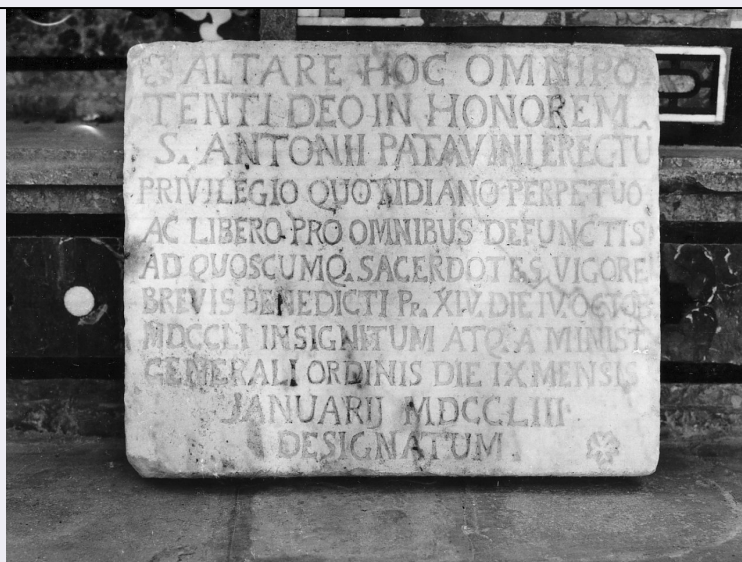 ALTARE HOC OMNIPO
TENTI DEO IN HONOREM
S. ANTONII PATAVINI ERECTU
PRIVILEGIO QUOTIDIANO PERPETUO
AC LIBERO PRO OMNIBUS DEFUNCTIS
AD QUOSCUMQ. SACERDOTES VIGORE
BREVIS BENEDICTI PP. XIV. DIE IV. OCTOB.
MDCCLI INSIGNITUM ATQ. A MINIST.
GENERALI ORDINIS DIE IX MENSIS
JANUARIJ MDCCLIII
DESIGNATUM